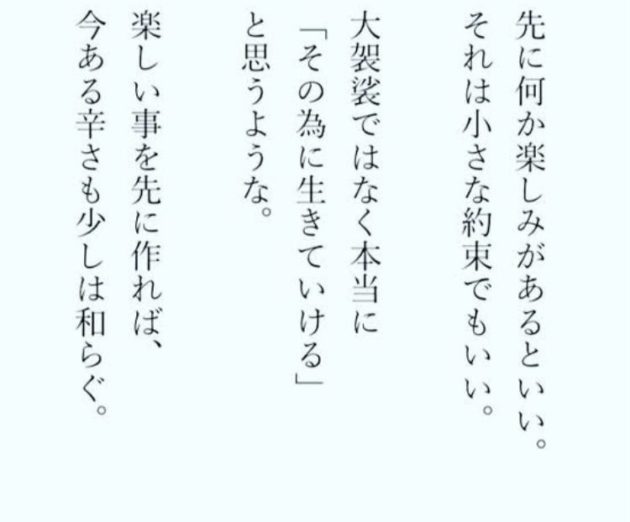 先に何か楽しみがあるといい。
それは小さな約束でもいい。
大袈裟ではなく本当に
「その為に生きていける」
と思うような。
楽しい事を先に作れば、
今ある辛さも少しは和らぐ。